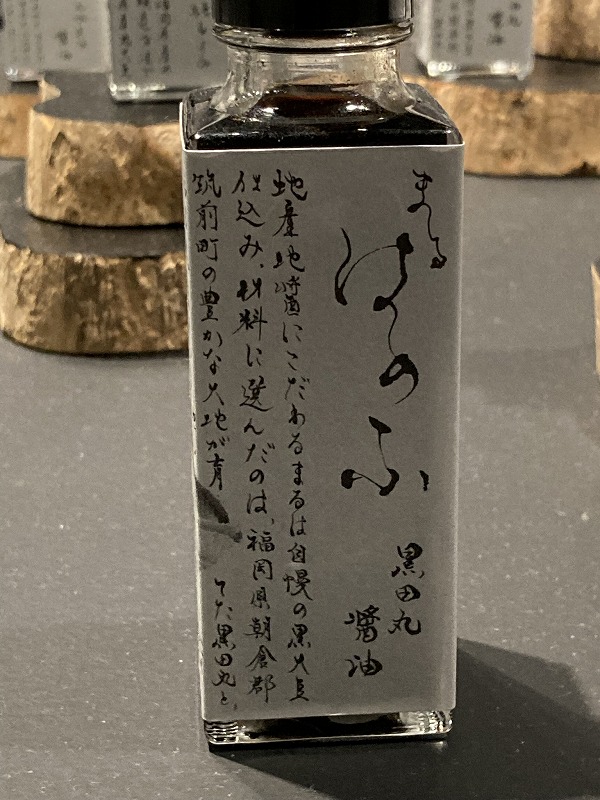 まる
はのふ
黒田丸
醤油
地産地醤にこだわるまるは自慢の黒大豆
仕込み、材料に選んだのは、福岡県朝倉郡
筑前町の豊かな大地が育
てた黒田丸と、